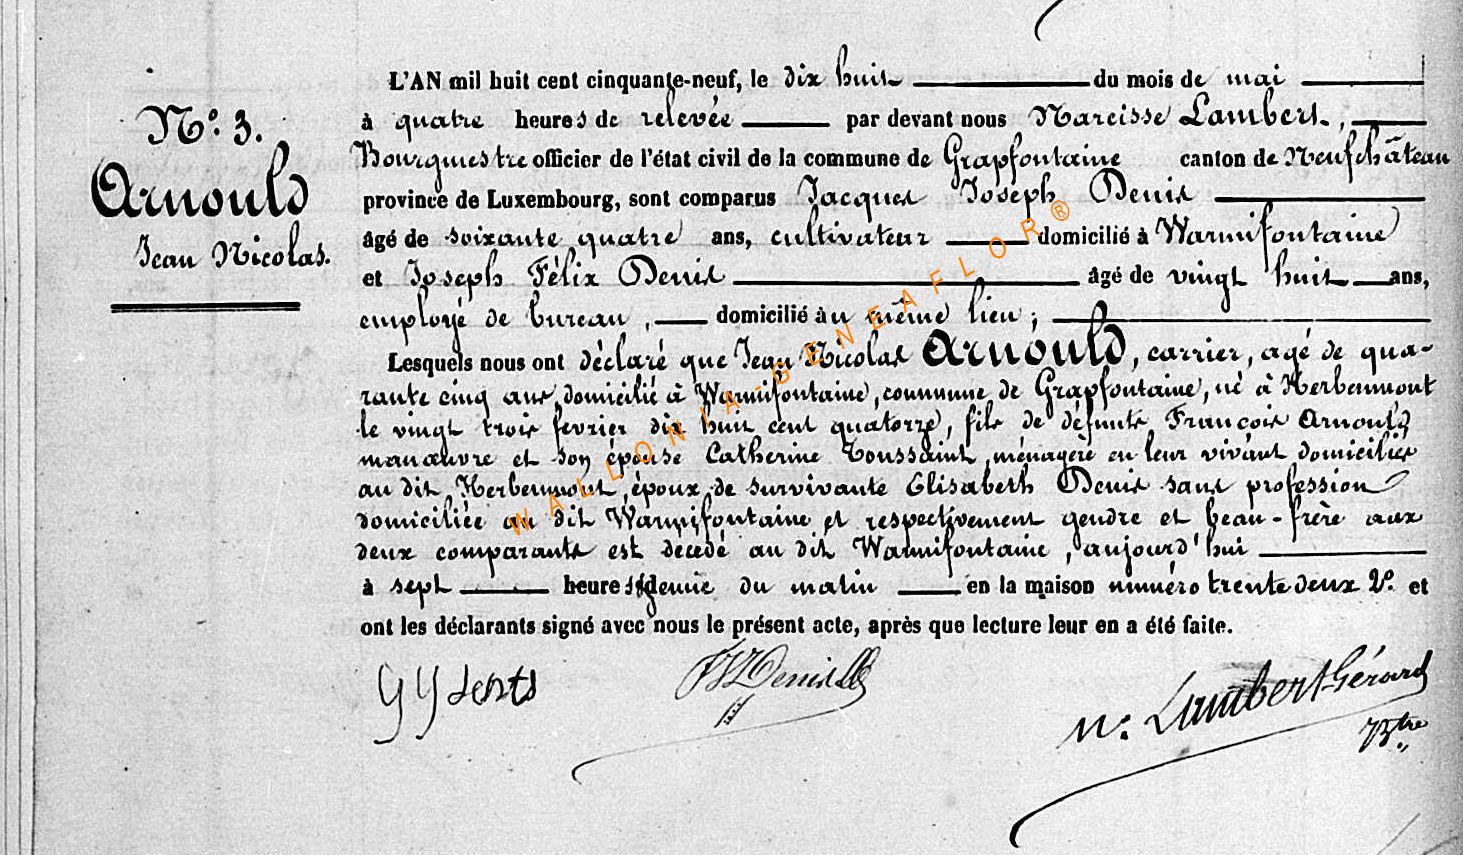 N°. 3.
Arnould
Jean Nicolas.
L'AN mil huit cent cinquante-neuf, le dix huit du mois de mai
à quatre heures de relevée par devant nous Narcisse Lambert,
Bourgmestre officier de l'état civil de la commune de Grapfontaine canton de Neufchâteau
province de Luxembourg, sont comparus Jacques Joseph Denis
âgé de soixante quatre ans, cultivateur domicilié à Warmifontaine
et Joseph Félix Denis âgé de vingt huit ans,
employé de bureau, domicilié au même lieu;
Lesquels nous ont déclaré que Jean Nicolas Arnould, carrier, agé de qua-
rante cinq ans, domicilié à Warmifontaine, commune de Grapfontaine, né à Herbeumont
le vingt trois fevrier dix huit cent quatorze, fils de défunts François Arnould,
manœuvre et son épouse Catherine Toussaint, ménagère en leur vivant domiciliés
au dit Herbeumont, époux de survivante Elisabeth Denis sans profession
domiciliée au dit Warmifontaine et respectivement gendre et beau-frère aux
deux comparants est décédé au dit Warmifontaine, aujourd'hui
à sept heures & demie du matin en la maison numéro trente deux 2°. et
ont les déclarants signé avec nous le présent acte, après que lecture leur en a été faite.
Denis
N. Lambert Gérard
Btre
WALLONIA-GENEAFLOR®